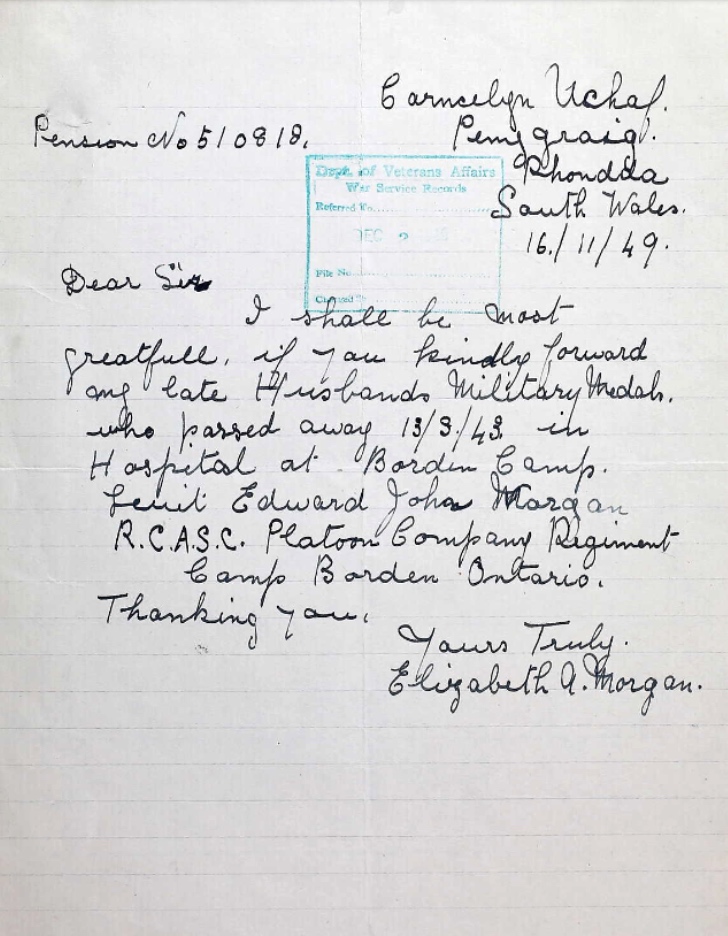 Carncelyn Uchaf.
Pension No 510818.
Penygraig.
Rhondda
South Wales.
16/11/49.
Dept. of Veterans Affairs
War Service Records
Referred to
DEC 2
File No.
Charged to
Dear Sir
I shall be most
greatfull, if you kindly forward
my late Husbands Military Medals.
who passed away 13/3/43 in
Hospital at Borden Camp.
Leuit Edward John Morgan
R.C.A.S.C. Platoon Company Regiment
Camp Borden Ontario.
Thanking you.
Yours Truly.
Elizabeth A. Morgan.